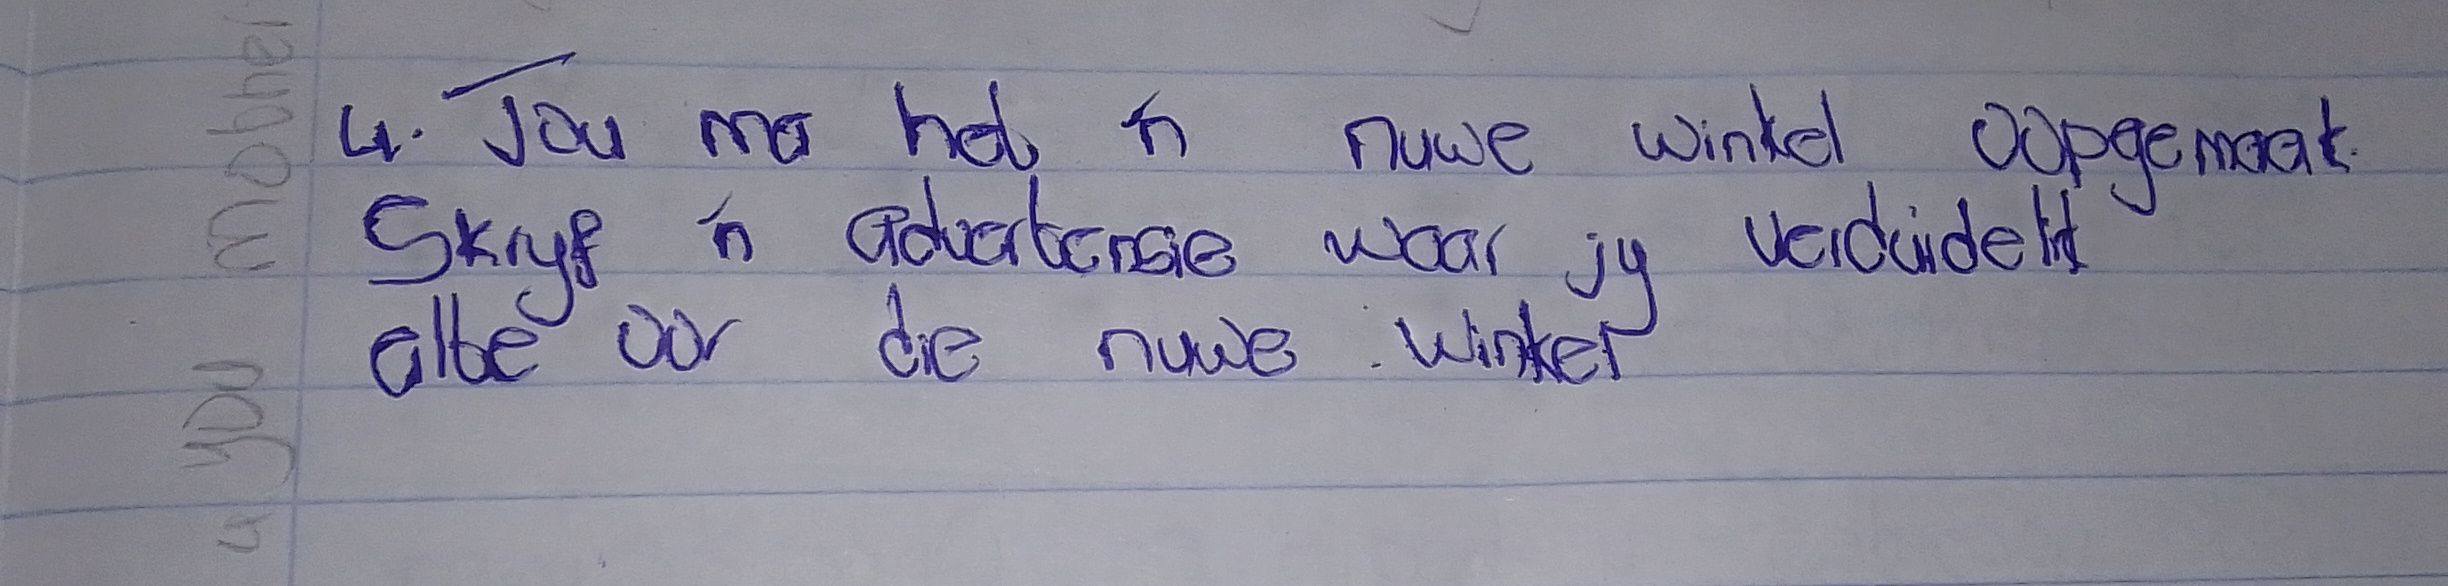 4. Jou ma het 'n nuwe winkel oopgemaak.
Skryf 'n advertensie waar jy verduidelik
alte oor die nuwe winkel
you mother